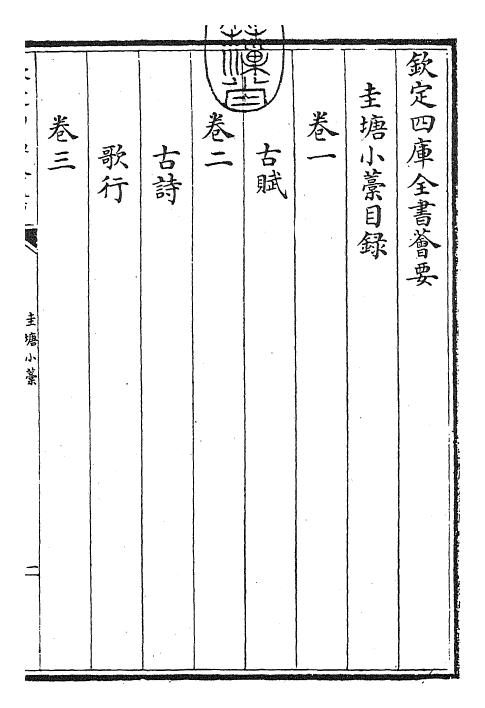 欽定四庫全書薈要
圭塘小藁目録
卷一
古賦
卷二
古詩
歌行
卷三
圭塘小藁
二